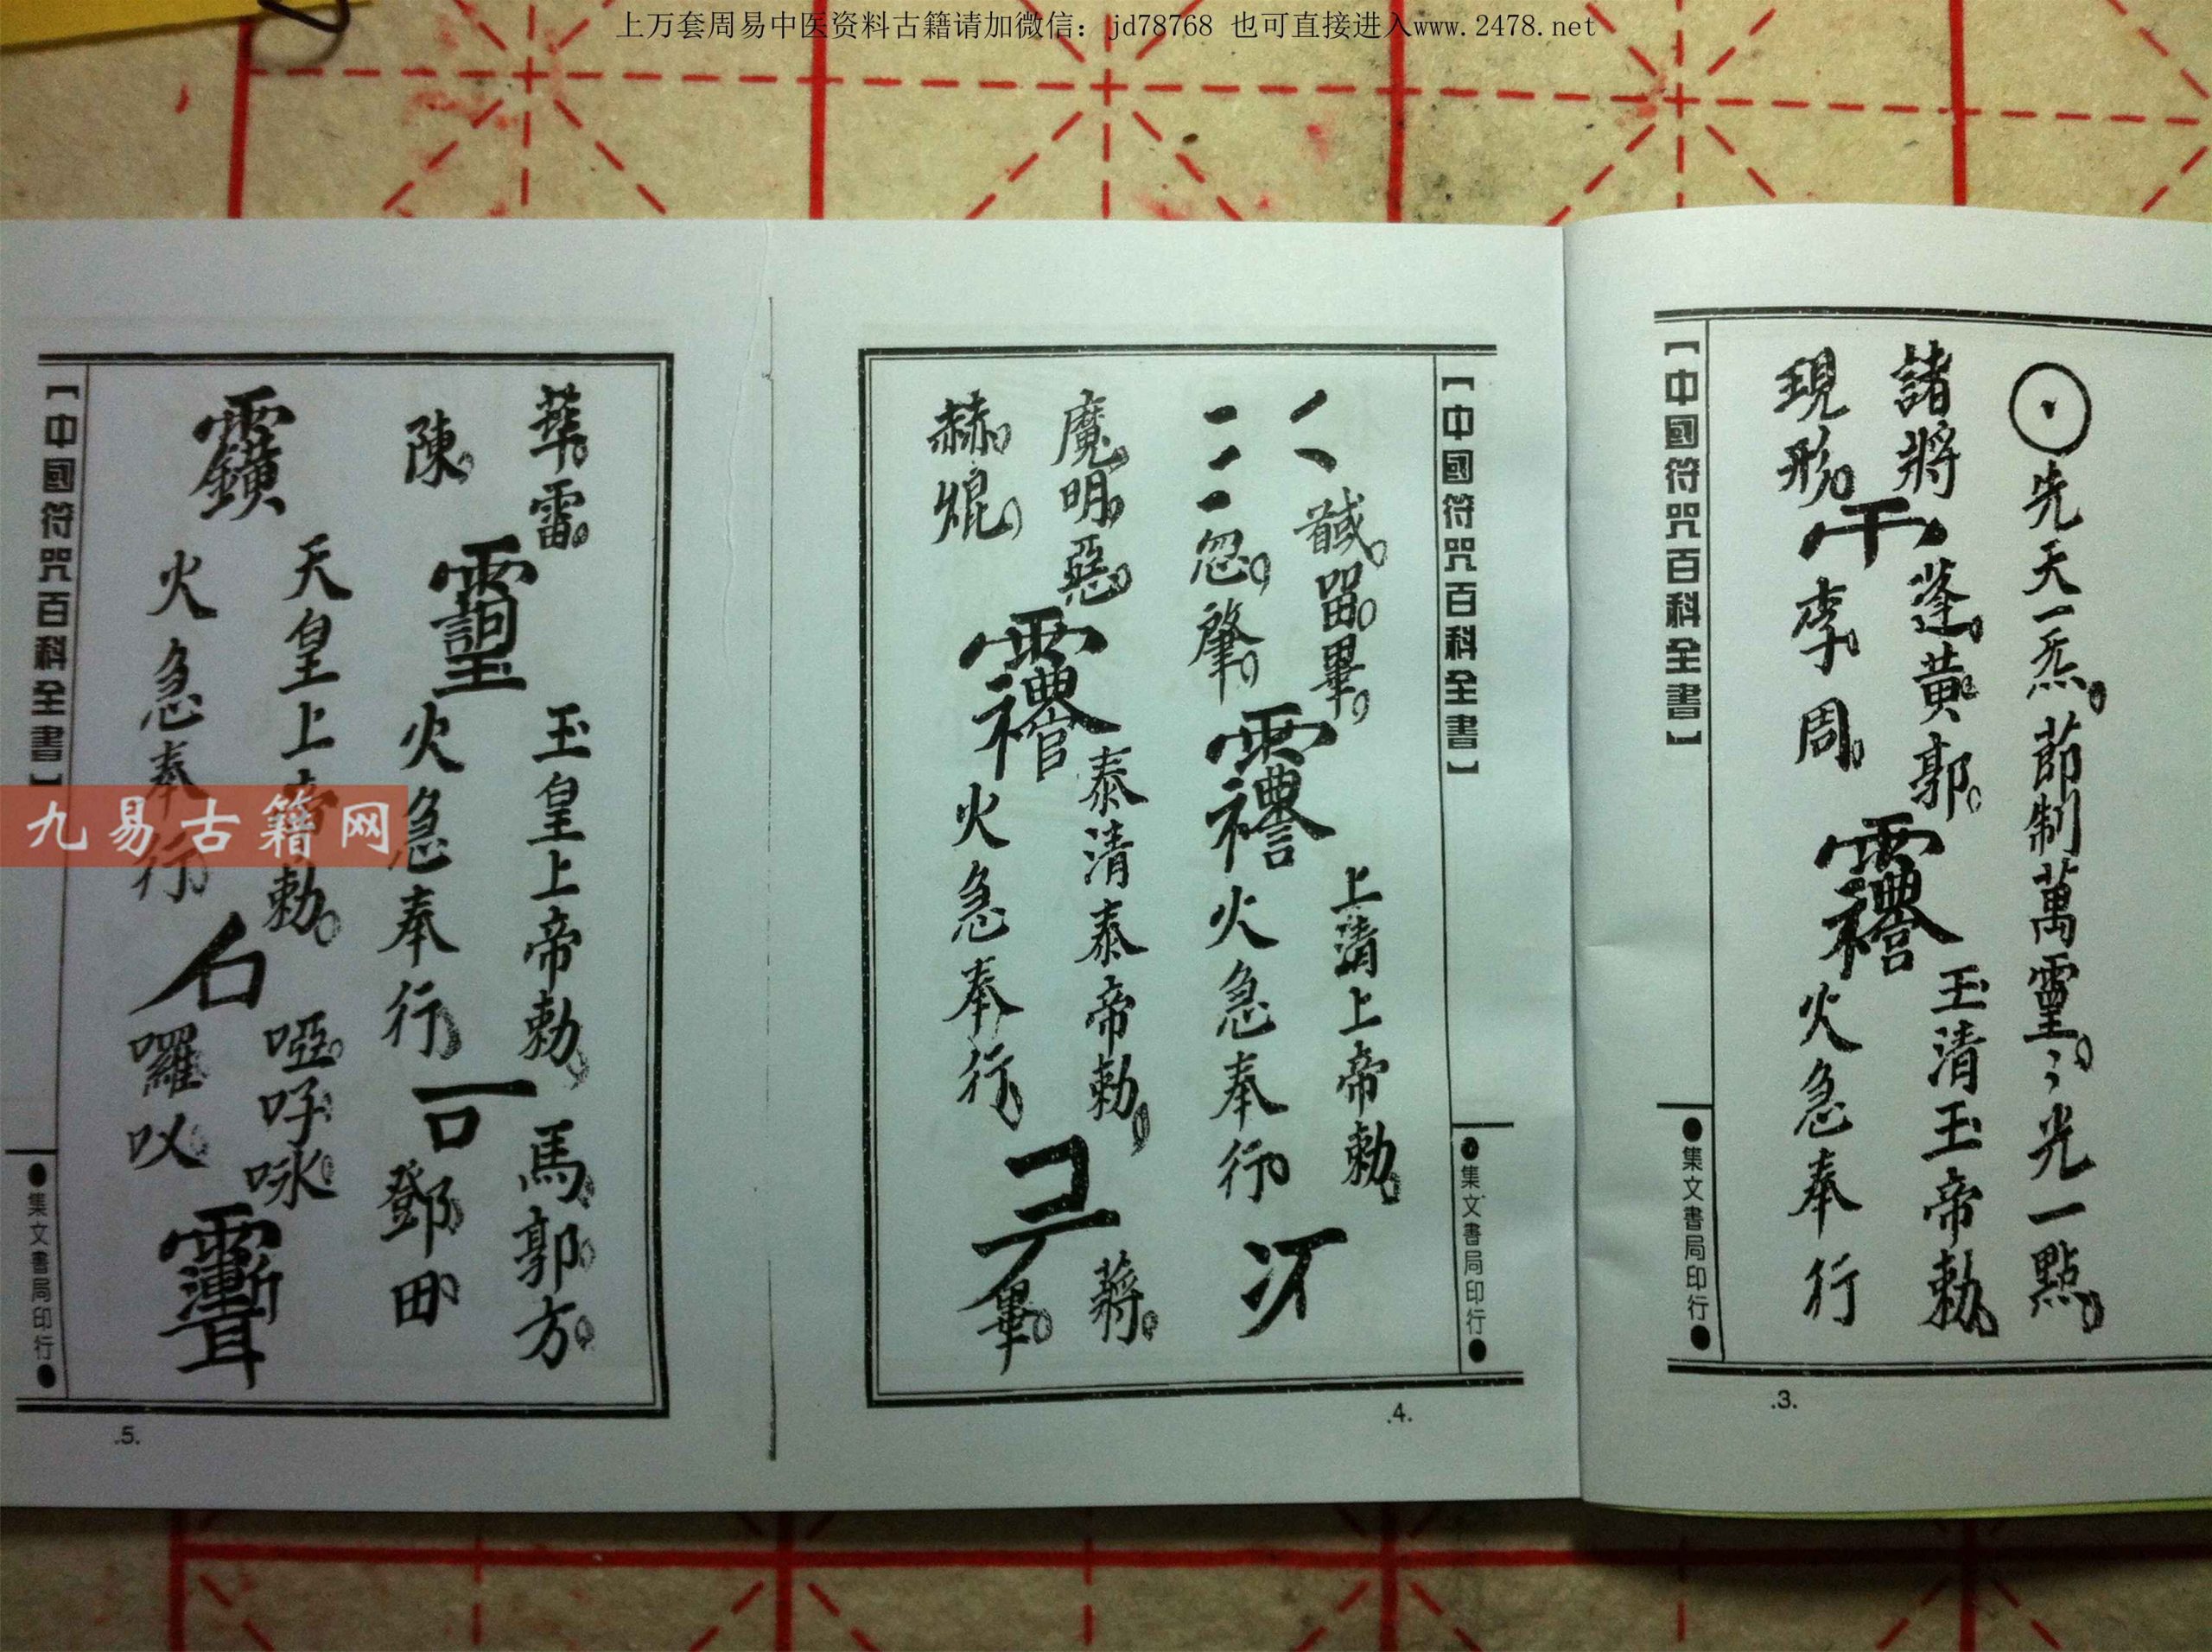 上万套周易中医资料古籍请加微信：jd78768 也可直接进入www.2478.net
【中國符咒百科全書】
●集文書局印行●
先天一炁。節制萬靈。
光一點。
諸將
現形。
蓬。黃。郭。
李。周。
玉清玉帝勅。
火急奉行
.3.
【中國符咒百科全書】
●集文書局印行●
畢。
忽。肇。
上清上帝勅。
火急奉行
魔。明。惡。
赫。焜。
泰清泰帝勅。
火急奉行。
蔣。
畢。
.4.
華。雷。
陳。
玉皇上帝勅。
火急奉行。
馬。郭。方。
鄧。田。
天皇上帝勅。
火急奉行。
啞。吽。咏。
囉。
【中國符咒百科全書】
●集文書局印行●
.5.
九易古籍网